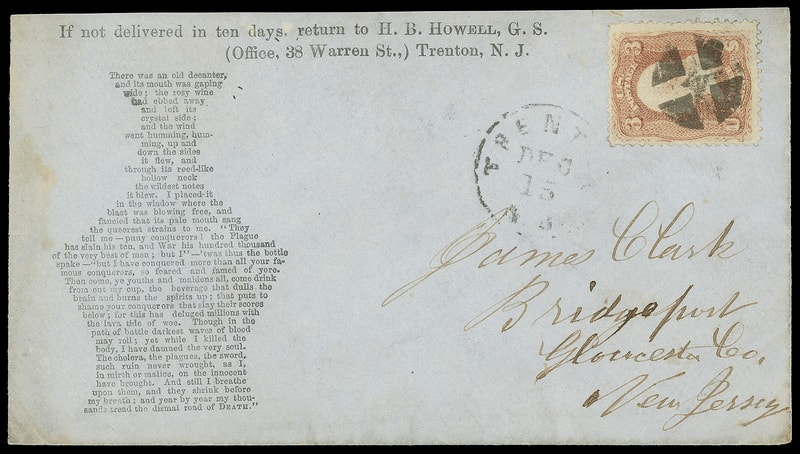 If not delivered in ten days. return to H. B. HOWELL, G. S.
(Office, 38 Warren St.,) Trenton, N. J.
There was an old decanter,
and its mouth was gaping
wide; the rosy wine
had ebbed away
and left its
crystal side;
and the wind
went humming, hum-
ming, up and
down the sides
it flew, and
through its reed-like
hollow neck
the wildest notes
it blew. I placed it
in the window where the
blast was blowing free, and
fancied that its pale mouth sang
the queerest strains to me. "They
tell me—puny conquerors! the Plague
has slain his ten, and War his hundred thousand
of the very best of men; but I"—'twas thus the bottle
spake—"but I have conquered more than all your fa-
mous conquerors, so feared and famed of yore.
Then come, ye youths and maidens all, come drink
from out my cup, the beverage that dulls the
brain and burns the spirits up; that puts to
shame your conquerors that slay their scores
below; for this has deluged millions with
the lava tide of woe. Though in the
path of battle darkest waves of blood
may roll; yet while I killed the
body, I have damned the very soul.
The cholera, the plagues, the sword,
such ruin never wrought, as I,
in mirth or malice, on the innocent
have brought. And still I breathe
upon them, and they shrink before
my breath; and year by year my thou-
sands tread the dismal road of DEATH."
TRENT
DEC
15
3
3
U
James Clark
Bridgeport
Gloucester Co.
New Jersey